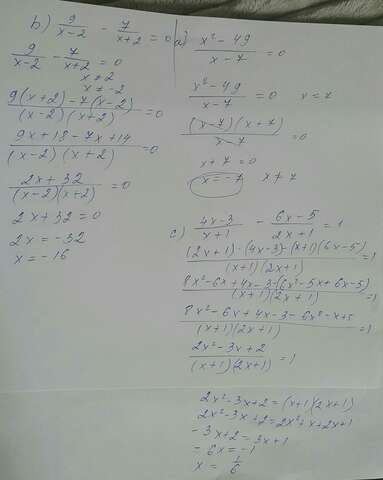 b) 9/(x-2) - 7/(x+2) = 0
9/(x-2) - 7/(x+2) = 0
x ≠ 2
x ≠ -2
(9(x+2) - 7(x-2))/((x-2)(x+2)) = 0
(9x+18-7x+14)/((x-2)(x+2)) = 0
(2x+32)/((x-2)(x+2)) = 0
2x+32=0
2x=-32
x=-16
a) (x²-49)/(x-7) = 0
(x²-49)/(x-7) = 0
((x-7)(x+7))/(x-7) = 0
x+7=0
x=-7 x≠7
c) (4x-3)/(x+1) - (6x-5)/(2x+1) = 1
((2x+1)·(4x-3)-(x+1)(6x-5))/((x+1)(2x+1)) = 1
(8x²-6x+4x-3-(6x²-5x+6x-5))/((x+1)(2x+1)) = 1
(8x²-6x+4x-3-6x²-x+5)/((x+1)(2x+1)) = 1
(2x²-3x+2)/((x+1)(2x+1)) = 1
2x²-3x+2=(x+1)(2x+1)
2x²-3x+2=2x²+x+2x+1
-3x+2=3x+1
=6x=-1
x=1/6